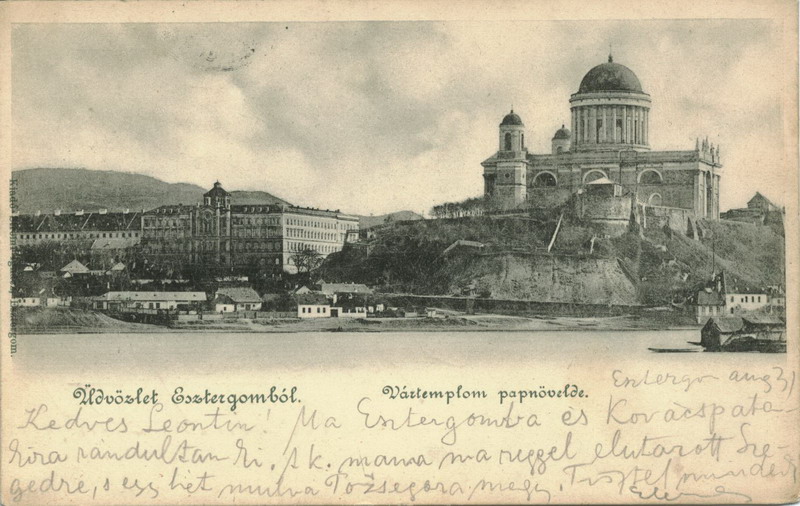 Üdvözlet Esztergomból.
Vártemplom papnövelde.
Esztergom aug 31
Kedves Leontin! Ma Esztergomba és Kovácspata-
kóra rándultam ki. A k. mama ma reggel elutazott Sze-
gedre, s egy hét mulva megy. Tisztel mindenkit